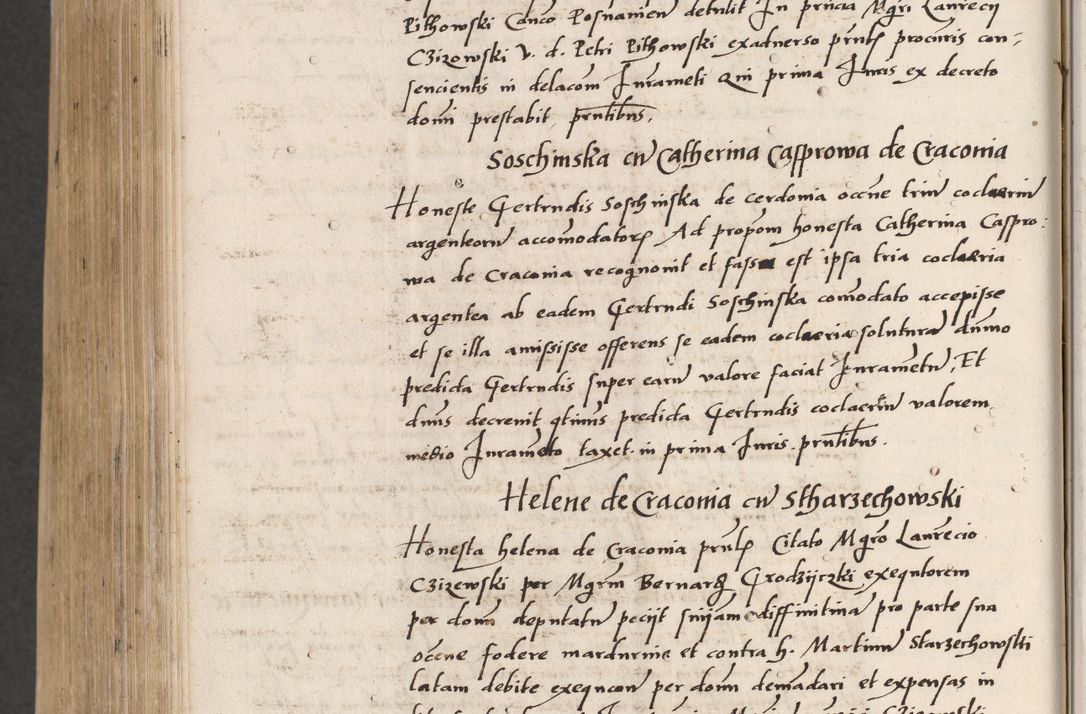 Pithowski Canco Posnanien detulit In prima Mgri Laurecij
Czizowski V. d. Petri Pithowski exadverso prntis procuris con-
sencientis in delacom Jurameti Qui prima Juris ex decreto
domi prestabit, prntibus.
Soschinska cu Catherina Casprowa de Cracovia
Honeste Gertrudis Soschinska de cerdonia occne triu cocleariu
argenteoru accomodatorz Ad propom honesta Catherina Caspro:
wa de Cracovia recognovit et fassa est ipsa tria coclearia
argentea ab eadem Gertrudi Soschinska comodato accepisse
et se illa amisisse offerens se eadem coclearia soluturam dumo
predicta Gertrudis super earu valore faciat Jurametu, Et
dnus decrevit qtinus predicta Gertrudis coclaeriu valorem
medio Jurameto taxet in prima Juris. prntibus.
Helene de Cracovia cu Stharzechowski
Honesta helena de Cracovia prnte Citato Mgro Laurecio
Czizewski per Mgrm Bernard Grodzijczki exequtorem
per domi deputatu pecijt sniam diffinitiva pro parte sua
occne fodere mardurine et contra h. Martinu Starzechowski
latam debite exequcon per domi demadari et expensas in